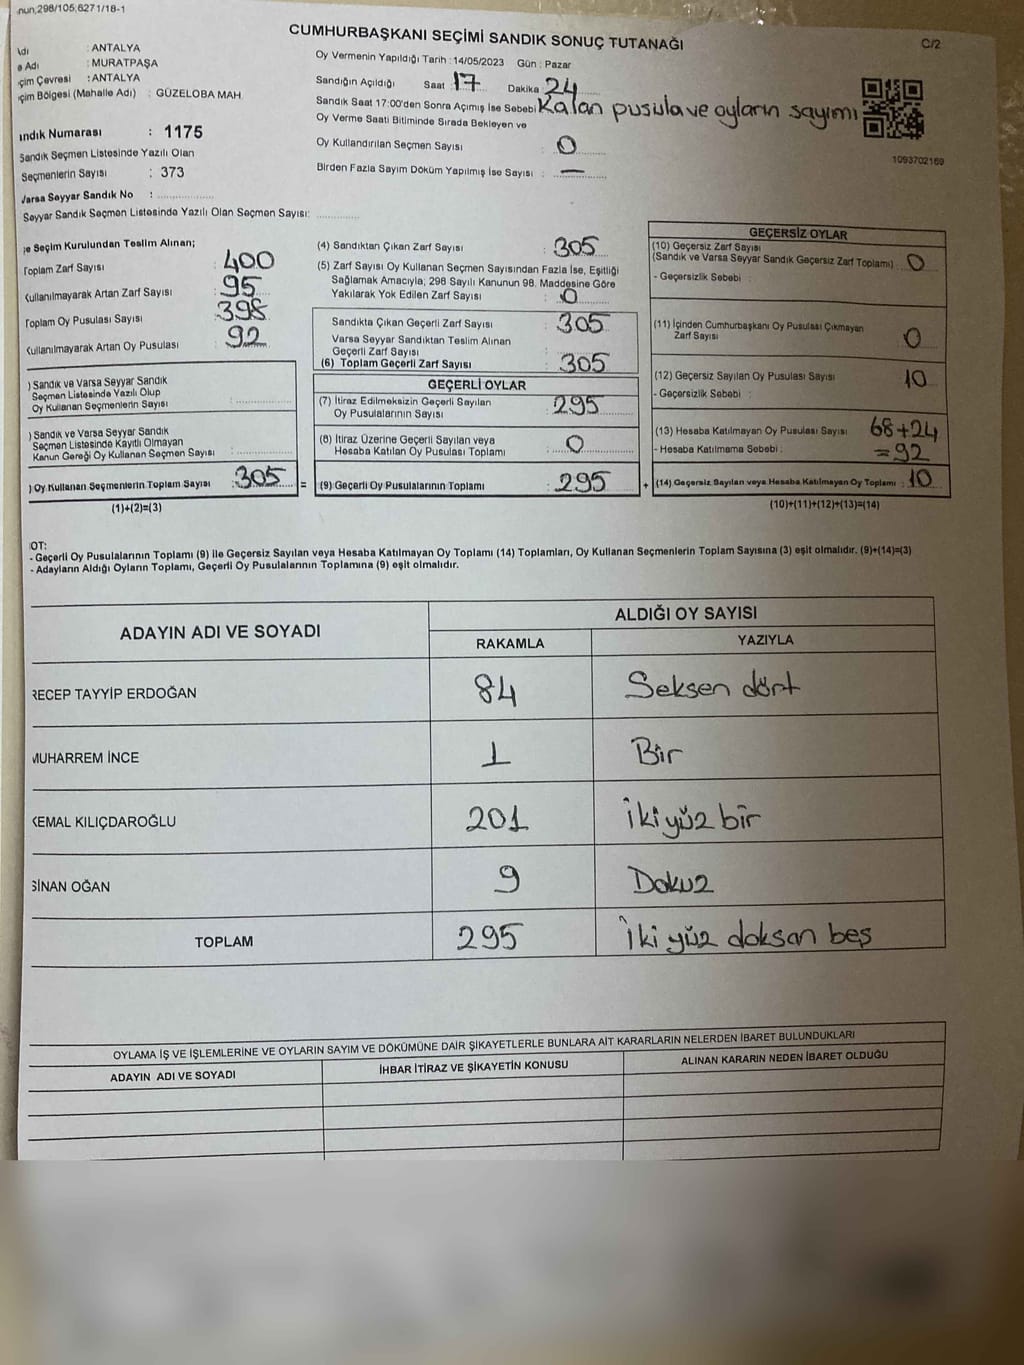 nun,298/105,6271/18-1
CUMHURBAŞKANI SEÇİMİ SANDIK SONUÇ TUTANAĞI
C/2
Adı : ANTALYA
e Adı : MURATPAŞA
çim Çevresi : ANTALYA
çim Bölgesi (Mahalle Adı) : GÜZELOBA MAH.
ındık Numarası : 1175
Sandık Seçmen Listesinde Yazılı Olan
Seçmenlerin Sayısı : 373
Varsa Seyyar Sandık No :
Seyyar Sandık Seçmen Listesinde Yazılı Olan Seçmen Sayısı:
Oy Vermenin Yapıldığı Tarih : 14/05/2023 Gün : Pazar
Sandığın Açıldığı Saat 17 Dakika 24
Sandık Saat 17:00'den Sonra Açımış İse Sebebi Kalan pusula ve oyların sayımı
Oy Verme Saati Bitiminde Sırada Bekleyen ve
Oy Kullandırılan Seçmen Sayısı : 0
Birden Fazla Sayım Döküm Yapılmış İse Sayısı : —
1093702169
çe Seçim Kurulundan Teslim Alınan;
Toplam Zarf Sayısı : 400
Kullanılmayarak Artan Zarf Sayısı : 95
Toplam Oy Pusulası Sayısı : 398
Kullanılmayarak Artan Oy Pusulası : 92
) Sandık ve Varsa Seyyar Sandık
Seçmen Listesinde Yazılı Olup
Oy Kullanan Seçmenlerin Sayısı :
) Sandık ve Varsa Seyyar Sandık
Seçmen Listesinde Kayıtlı Olmayan
Kanun Gereği Oy Kullanan Seçmen Sayısı :
) Oy Kullanan Seçmenlerin Toplam Sayısı : 305 =
(1)+(2)=(3)
(4) Sandıktan Çıkan Zarf Sayısı : 305
(5) Zarf Sayısı Oy Kullanan Seçmen Sayısından Fazla İse, Eşitliği
Sağlamak Amacıyla, 298 Sayılı Kanunun 98. Maddesine Göre
Yakılarak Yok Edilen Zarf Sayısı : 0
Sandıkta Çıkan Geçerli Zarf Sayısı : 305
Varsa Seyyar Sandıktan Teslim Alınan
Geçerli Zarf Sayısı :
(6) Toplam Geçerli Zarf Sayısı : 305
GEÇERLİ OYLAR
(7) İtiraz Edilmeksizin Geçerli Sayılan
Oy Pusulalarının Sayısı : 295
(8) İtiraz Üzerine Geçerli Sayılan veya
Hesaba Katılan Oy Pusulası Toplamı : 0
(9) Geçerli Oy Pusulalarının Toplamı : 295 +
GEÇERSİZ OYLAR
(10) Geçersiz Zarf Sayısı
(Sandık ve Varsa Seyyar Sandık Geçersiz Zarf Toplamı) : 0
- Geçersizlik Sebebi :
(11) İçinden Cumhurbaşkanı Oy Pusulası Çıkmayan
Zarf Sayısı : 0
(12) Geçersiz Sayılan Oy Pusulası Sayısı : 10
- Geçersizlik Sebebi :
(13) Hesaba Katılmayan Oy Pusulası Sayısı : 68+24
- Hesaba Katılmama Sebebi : =92
(14) Geçersiz Sayılan veya Hesaba Katılmayan Oy Toplamı : 10
(10)+(11)+(12)+(13)=(14)
OT:
- Geçerli Oy Pusulalarının Toplamı (9) ile Geçersiz Sayılan veya Hesaba Katılmayan Oy Toplamı (14) Toplamları, Oy Kullanan Seçmenlerin Toplam Sayısına (3) eşit olmalıdır. (9)+(14)=(3)
- Adayların Aldığı Oyların Toplamı, Geçerli Oy Pusulalarının Toplamına (9) eşit olmalıdır.
ADAYIN ADI VE SOYADI
ALDIĞI OY SAYISI
RAKAMLA YAZIYLA
RECEP TAYYİP ERDOĞAN 84 Seksen dört
MUHARREM İNCE 1 Bir
KEMAL KILIÇDAROĞLU 201 İki yüz bir
SİNAN OĞAN 9 Dokuz
TOPLAM 295 İki yüz doksan beş
OYLAMA İŞ VE İŞLEMLERİNE VE OYLARIN SAYIM VE DÖKÜMÜNE DAİR ŞİKAYETLERLE BUNLARA AİT KARARLARIN NELERDEN İBARET BULUNDUKLARI
ADAYIN ADI VE SOYADI İHBAR İTİRAZ VE ŞİKAYETİN KONUSU ALINAN KARARIN NEDEN İBARET OLDUĞU